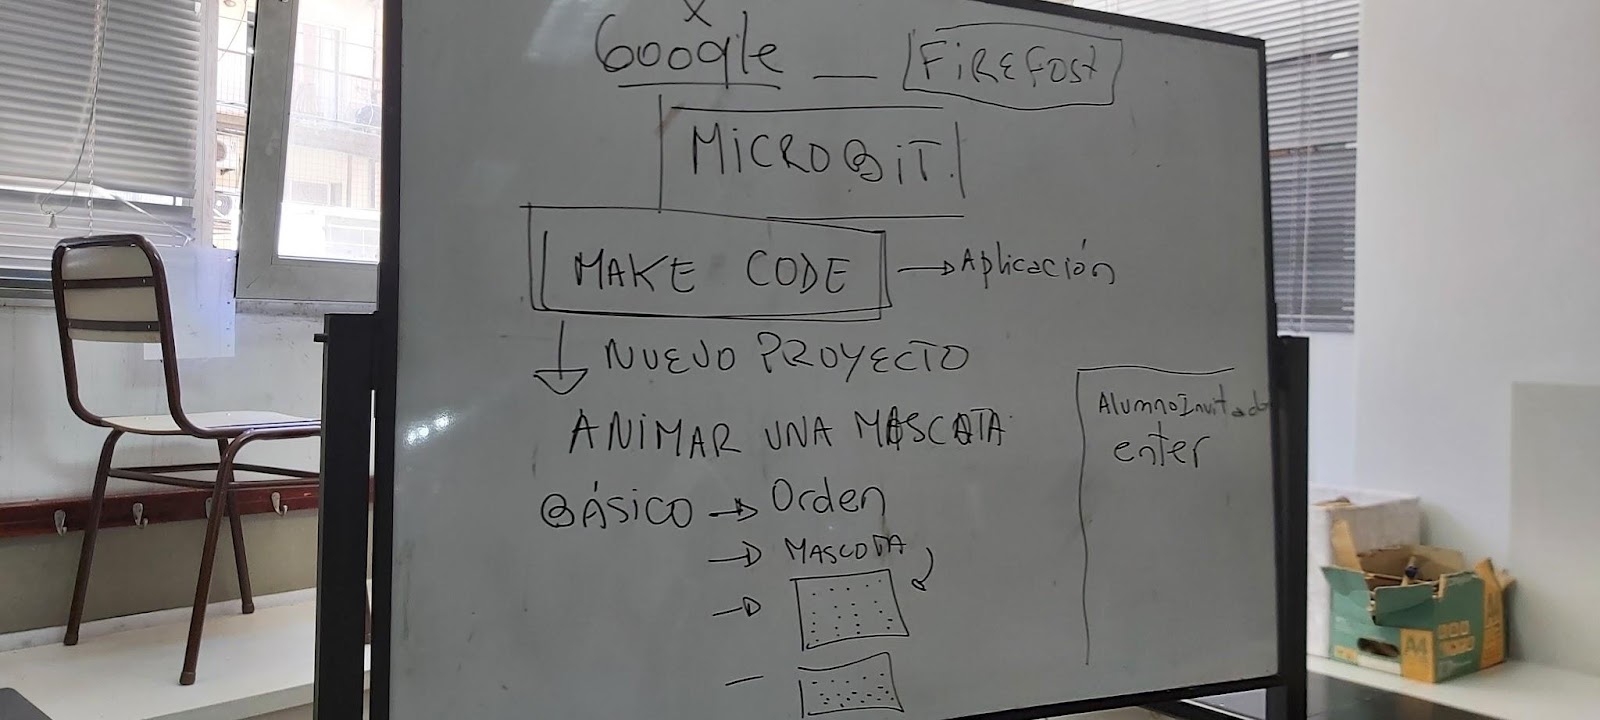 x
Google — FiREFOSX
MiCROBiT
MAKE CODE → Aplicación
NUEVO PROYECTO
ANIMAR UNA MASCOTA
BÁSICO → Orden
→ MASCOTA
AlumnoInvitado
enter
A4